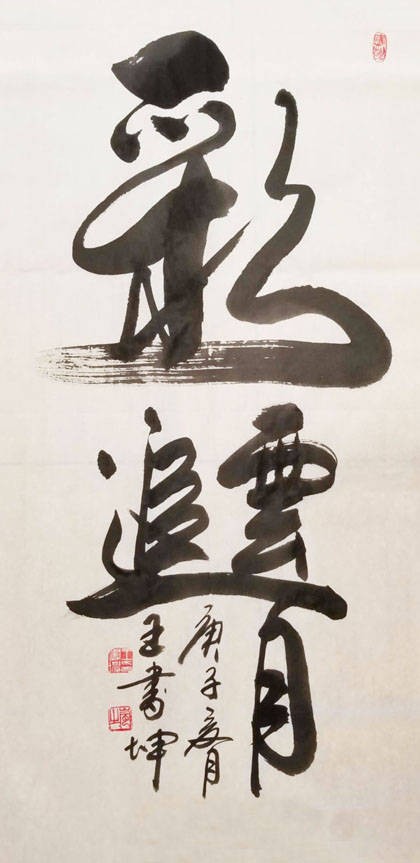 彩雲追月
庚子夏月
王書坤